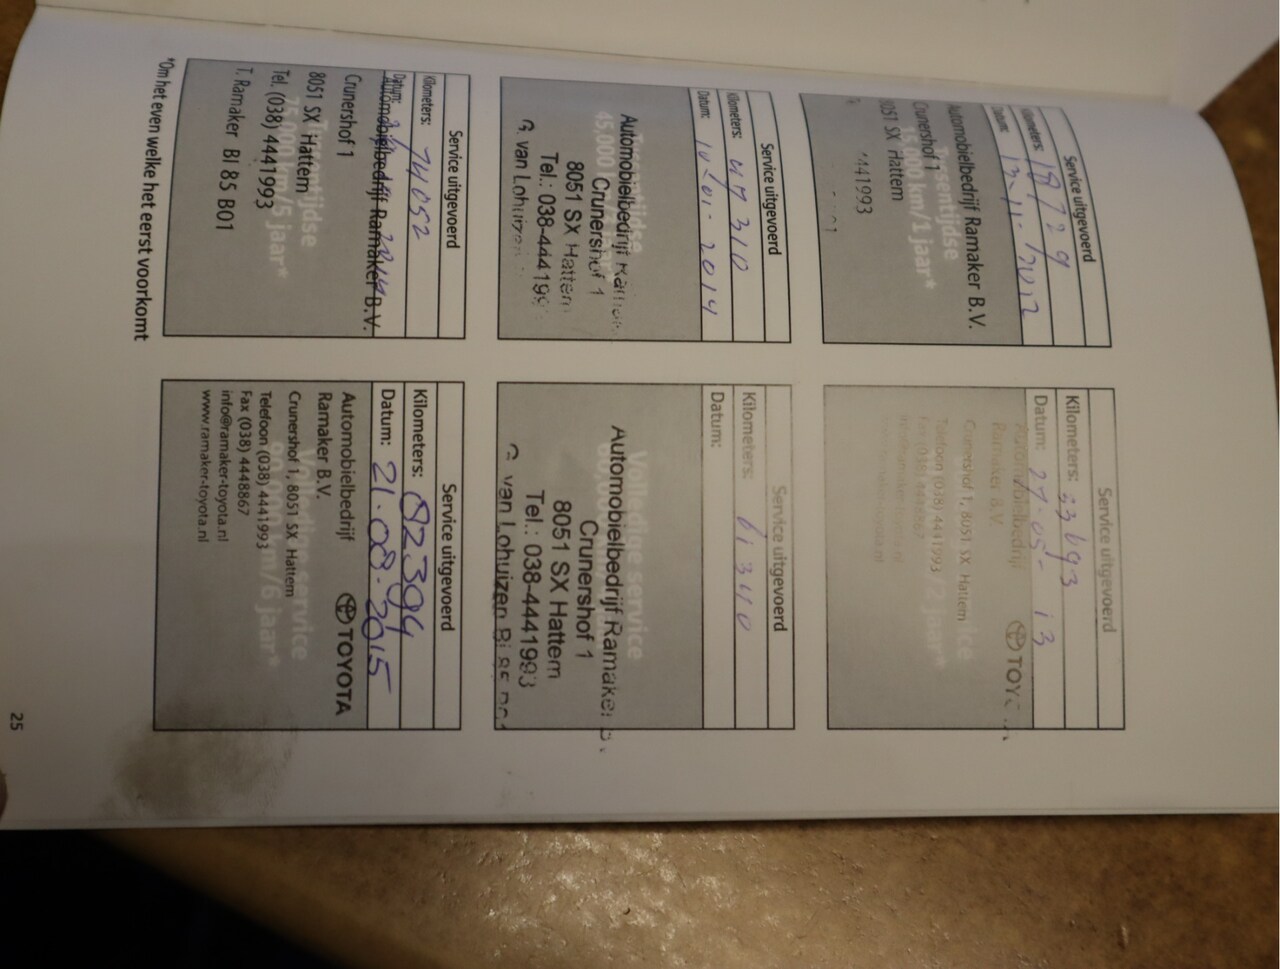 Service uitgevoerd
Kilometers: 18729
Datum: 13-11-2012
Automobielbedrijf Ramaker B.V.
Tussentijdse
Crunershof 1
000 km/1 jaar*
8051 SX Hattem
441993
Service uitgevoerd
Kilometers: 33693
Datum: 27-05-13
Automobielbedrijf
TOYO
Ramaker B.V.
Crunershof 1, 8051 SX Hattem
Telefoon (038) 4441993
/2 jaar*
Fax (038) 4448867
Service uitgevoerd
Kilometers: 47310
Datum: 2014
Automobielbedrijf
45.000 km
Crunershof 1
8051 SX Hattem
Tel.: 038-444199
G. van Lohuizen
Service uitgevoerd
Kilometers: 61340
Datum:
Volledige service
Automobielbedrijf Ramaker
Crunershof 1
8051 SX Hattem
Tel.: 038-4441993
G. van Lohuizen
Service uitgevoerd
Kilometers: 74052
Datum:
Automobielbedrijf Ramaker B.V.
Crunershof 1
Tussentijdse
8051 SX Hattem
75.000 km/5 jaar*
Tel. (038) 4441993
T. Ramaker BI 85 B01
Service uitgevoerd
Kilometers: 82394
Datum: 21-08-2015
Automobielbedrijf
TOYOTA
Ramaker B.V.
Volledige service
Crunershof 1, 8051 SX Hattem
km/6 jaar*
Telefoon (038) 4441993
Fax (038) 4448867
info@ramaker-toyota.nl
www.ramaker-toyota.nl
*Om het even welke het eerst voorkomt
25